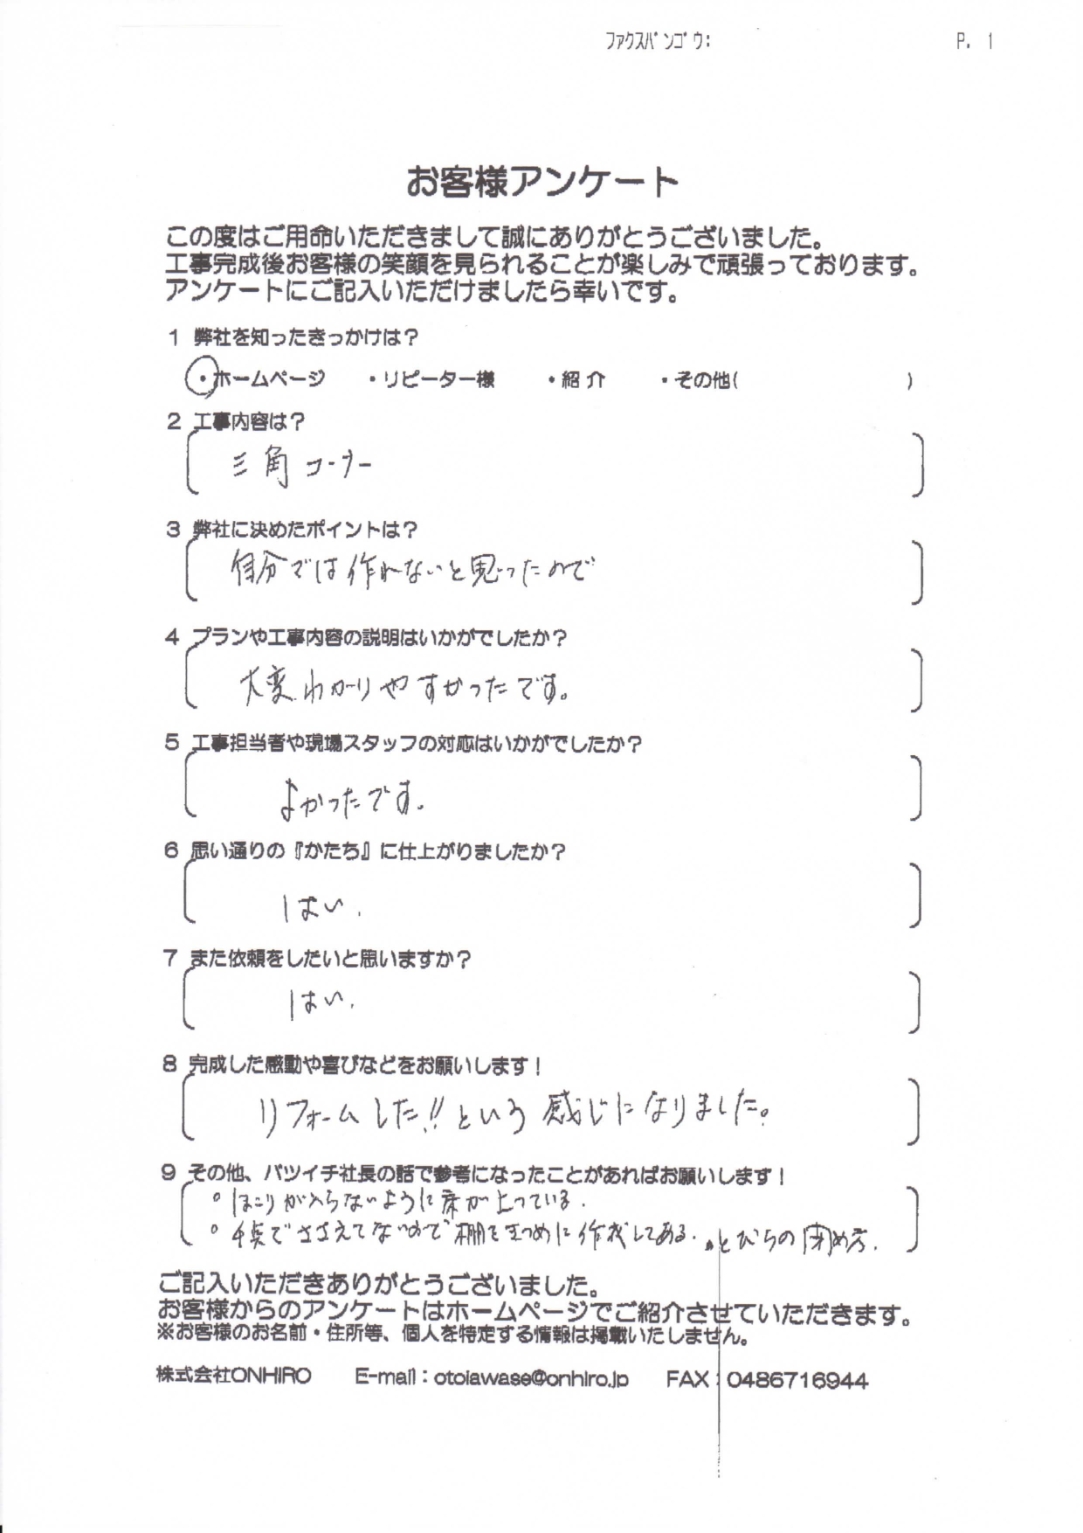 ﾌｧｸｽﾊﾞﾝｺﾞｳ: P. 1
お客様アンケート
この度はご用命いただきまして誠にありがとうございました。
工事完成後お客様の笑顔を見られることが楽しみで頑張っております。
アンケートにご記入いただけましたら幸いです。
1 弊社を知ったきっかけは？
・ホームページ ・リピーター様 ・紹介 ・その他( )
2 工事内容は？
三角コーナー
3 弊社に決めたポイントは？
自分では作れないと思ったので
4 プランや工事内容の説明はいかがでしたか？
大変わかりやすかったです。
5 工事担当者や現場スタッフの対応はいかがでしたか？
よかったです。
6 思い通りの『かたち』に仕上がりましたか？
はい.
7 また依頼をしたいと思いますか？
はい.
8 完成した感動や喜びなどをお願いします！
リフォームした!!という感じになりました。
9 その他、バツイチ社長の話で参考になったことがあればお願いします！
○ ほこりが入らないように床が上っている.
○ でささえてないので棚をきつめに作成してある. とびらの閉め方.
ご記入いただきありがとうございました。
お客様からのアンケートはホームページでご紹介させていただきます。
※お客様のお名前・住所等、個人を特定する情報は掲載いたしません。
株式会社ONHIRO E-mail：otoiawase@onhiro.jp FAX：0486716944